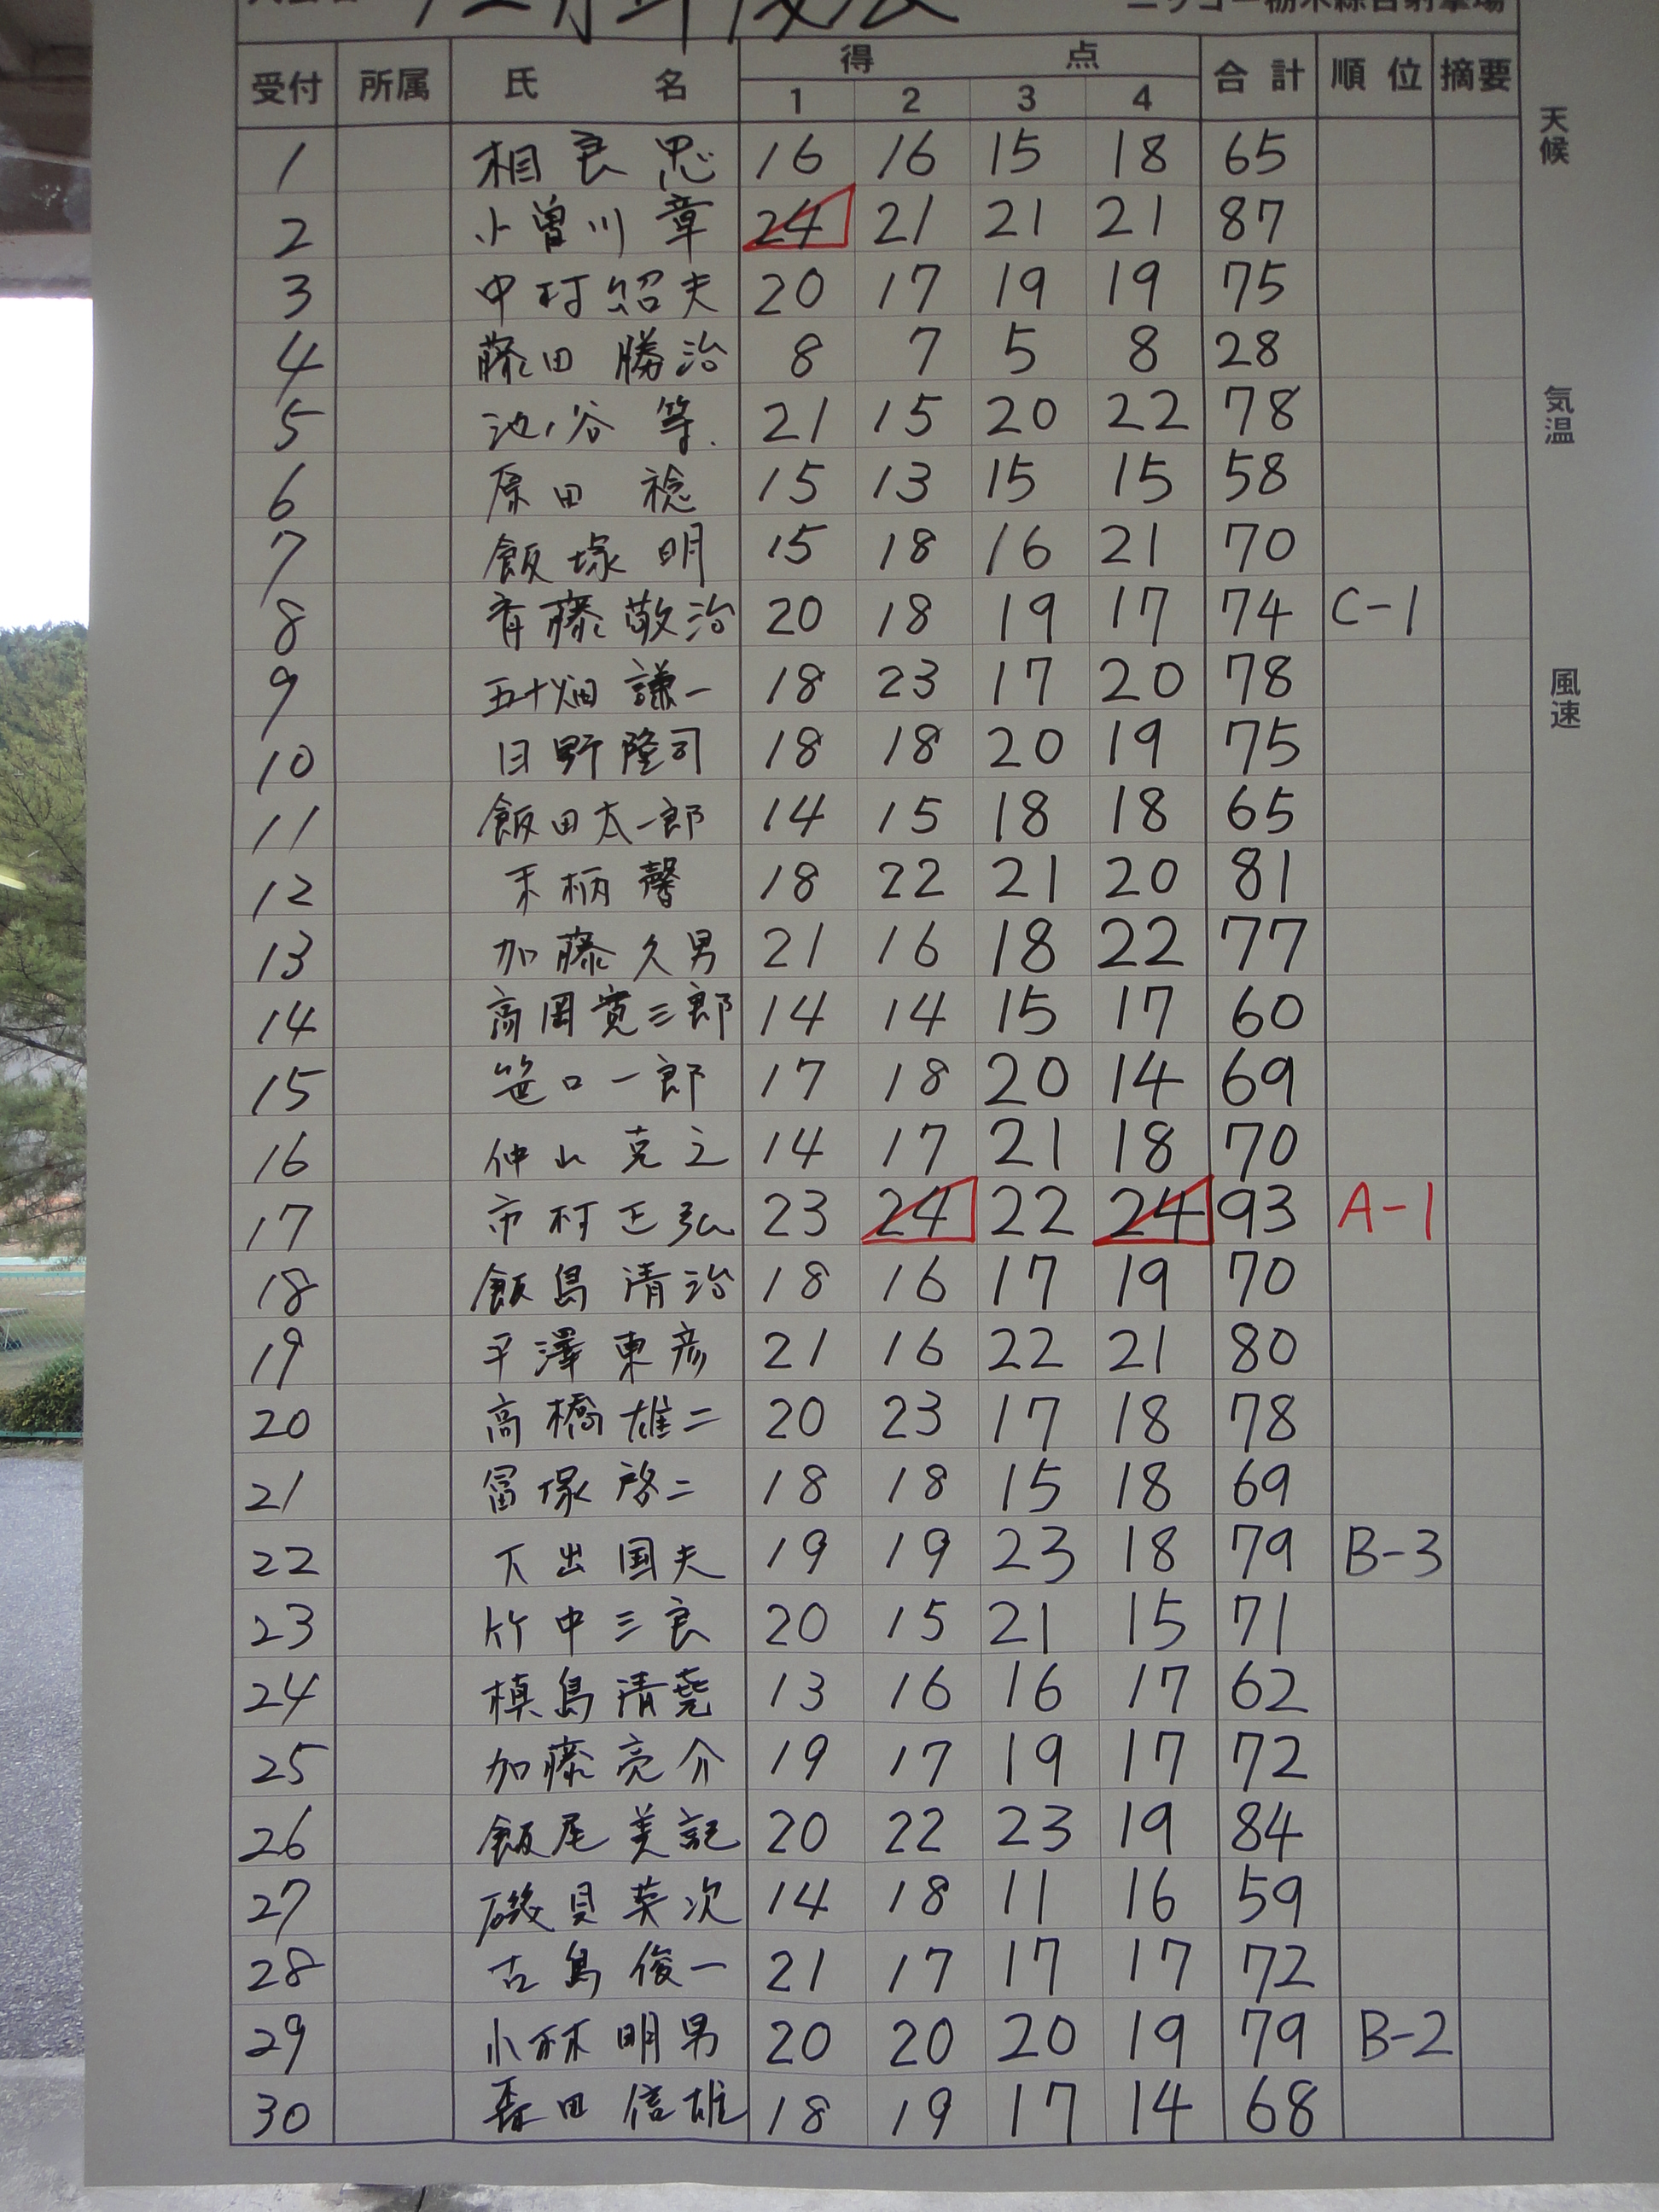 ニッコー栃木綜合射撃場
受付 所属 氏名 得点 合計 順位 摘要
1 2 3 4
1 相良忠 16 16 15 18 65
2 小曽川章 24 21 21 21 87
3 中村紹夫 20 17 19 19 75
4 藤田勝治 8 7 5 8 28
5 池ノ谷等 21 15 20 22 78
6 原田稔 15 13 15 15 58
7 飯塚明 15 18 16 21 70
8 斉藤敬治 20 18 19 17 74 C-1
9 五十畑謙一 18 23 17 20 78
10 日野隆司 18 18 20 19 75
11 飯田太一郎 14 15 18 18 65
12 柄馨 18 22 21 20 81
13 加藤久男 21 16 18 22 77
14 高岡寛三郎 14 14 15 17 60
15 笹口一郎 17 18 20 14 69
16 仲山克之 14 17 21 18 70
17 市村正弘 23 24 22 24 93 A-1
18 飯島清治 18 16 17 19 70
19 平澤東彦 21 16 22 21 80
20 高橋雄二 20 23 17 18 78
21 冨塚啓二 18 18 15 18 69
22 下出国夫 19 19 23 18 79 B-3
23 竹中三良 20 15 21 15 71
24 槙島清堯 13 16 16 17 62
25 加藤亮介 19 17 19 17 72
26 飯尾美記 20 22 23 19 84
27 磯貝英次 14 18 11 16 59
28 古島俊一 21 17 17 17 72
29 小林明男 20 20 20 19 79 B-2
30 森田信雄 18 19 17 14 68
天候
気温
風速